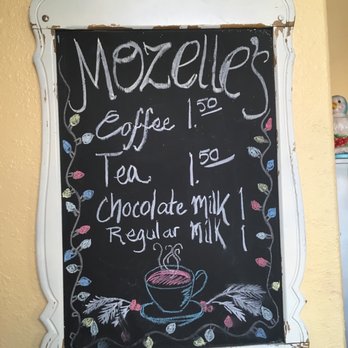 Mozelle's
Coffee 1.50
Tea 1.50
Chocolate Milk 1
Regular Milk 1